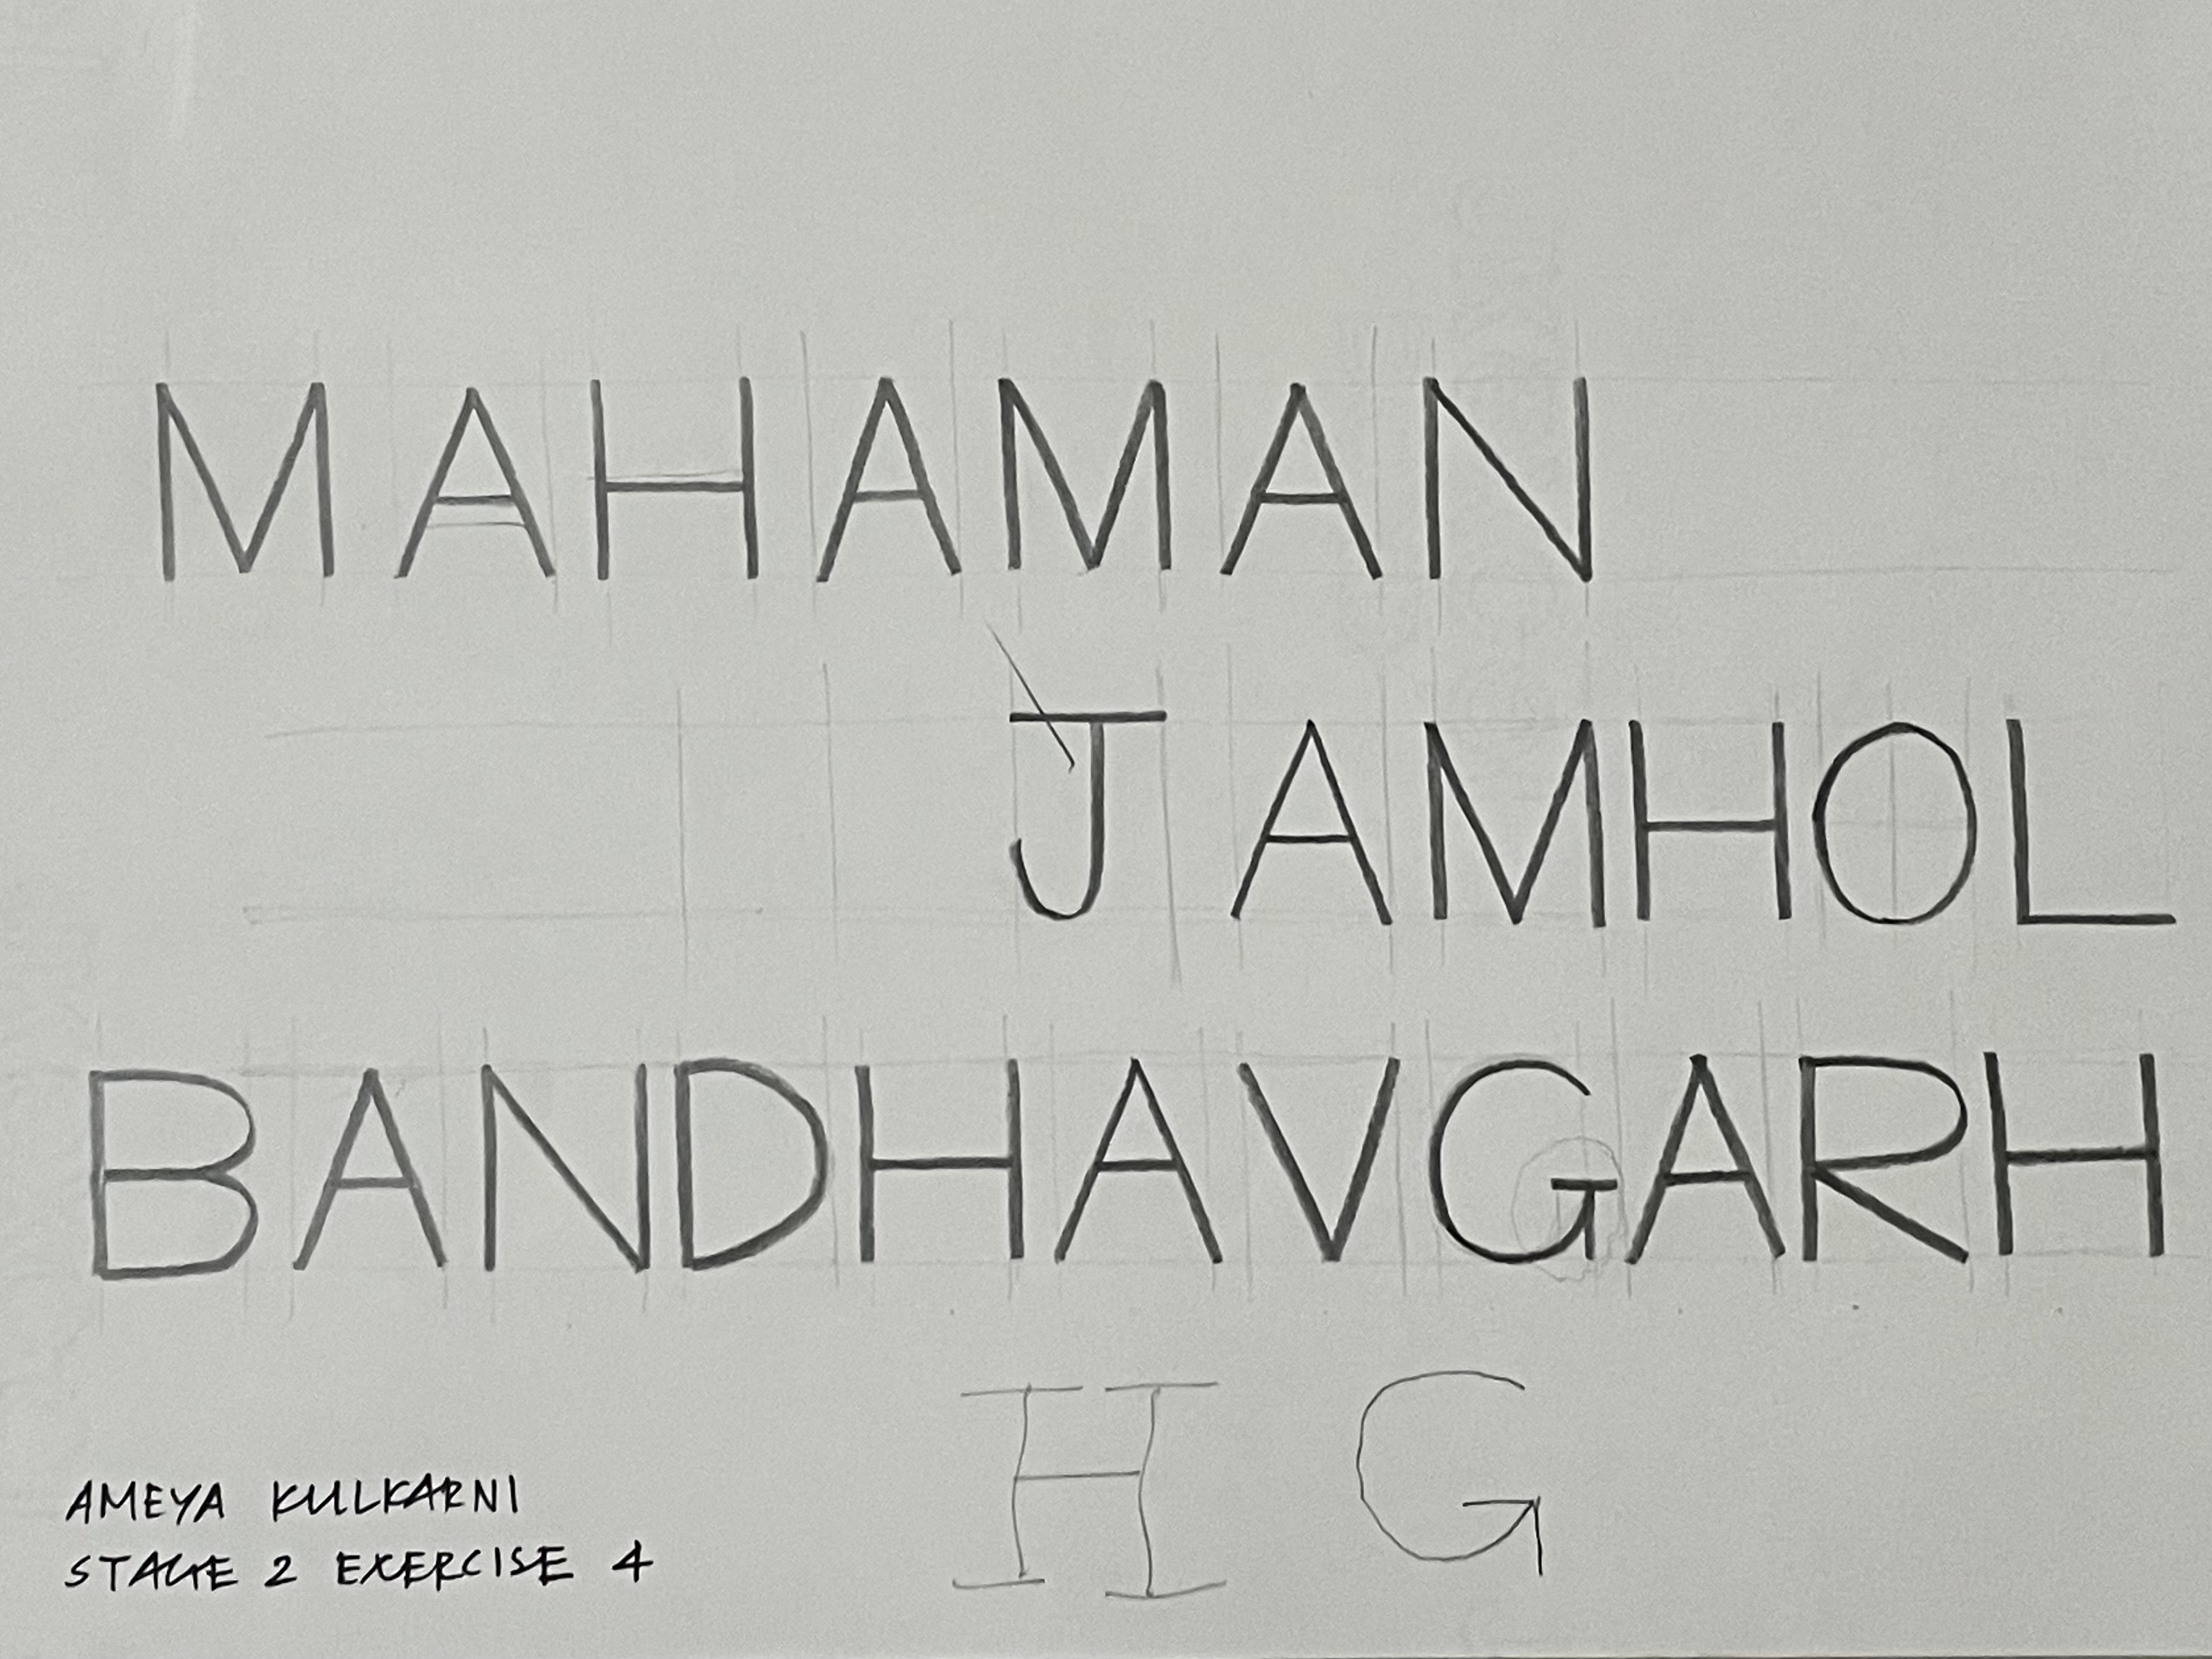 MAHAMAN
JAMHOL
BANDHAVGARH
H G
AMEYA KULKARNI
STAGE 2 EXERCISE 4